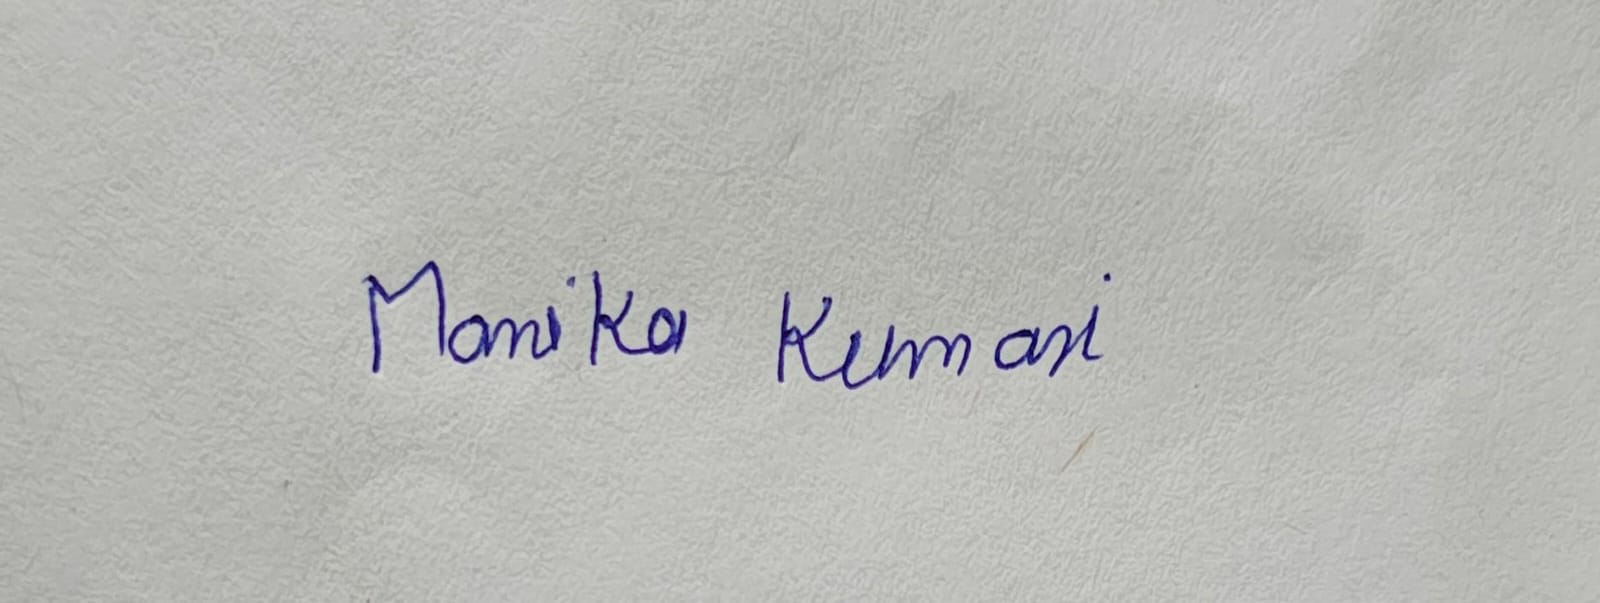 Manika Kumari